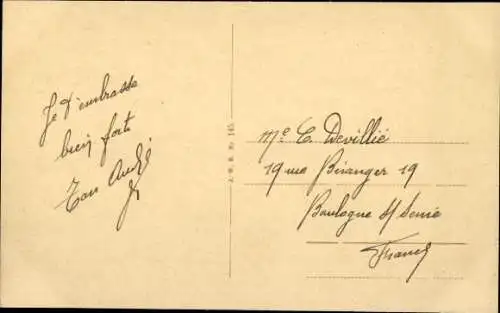 Je t'embrasse
bien fort
Ton André
A. W. B. Nr 145
Me C. Devillié
19 rue Béranger 19
Boulogne s/ Seine
France